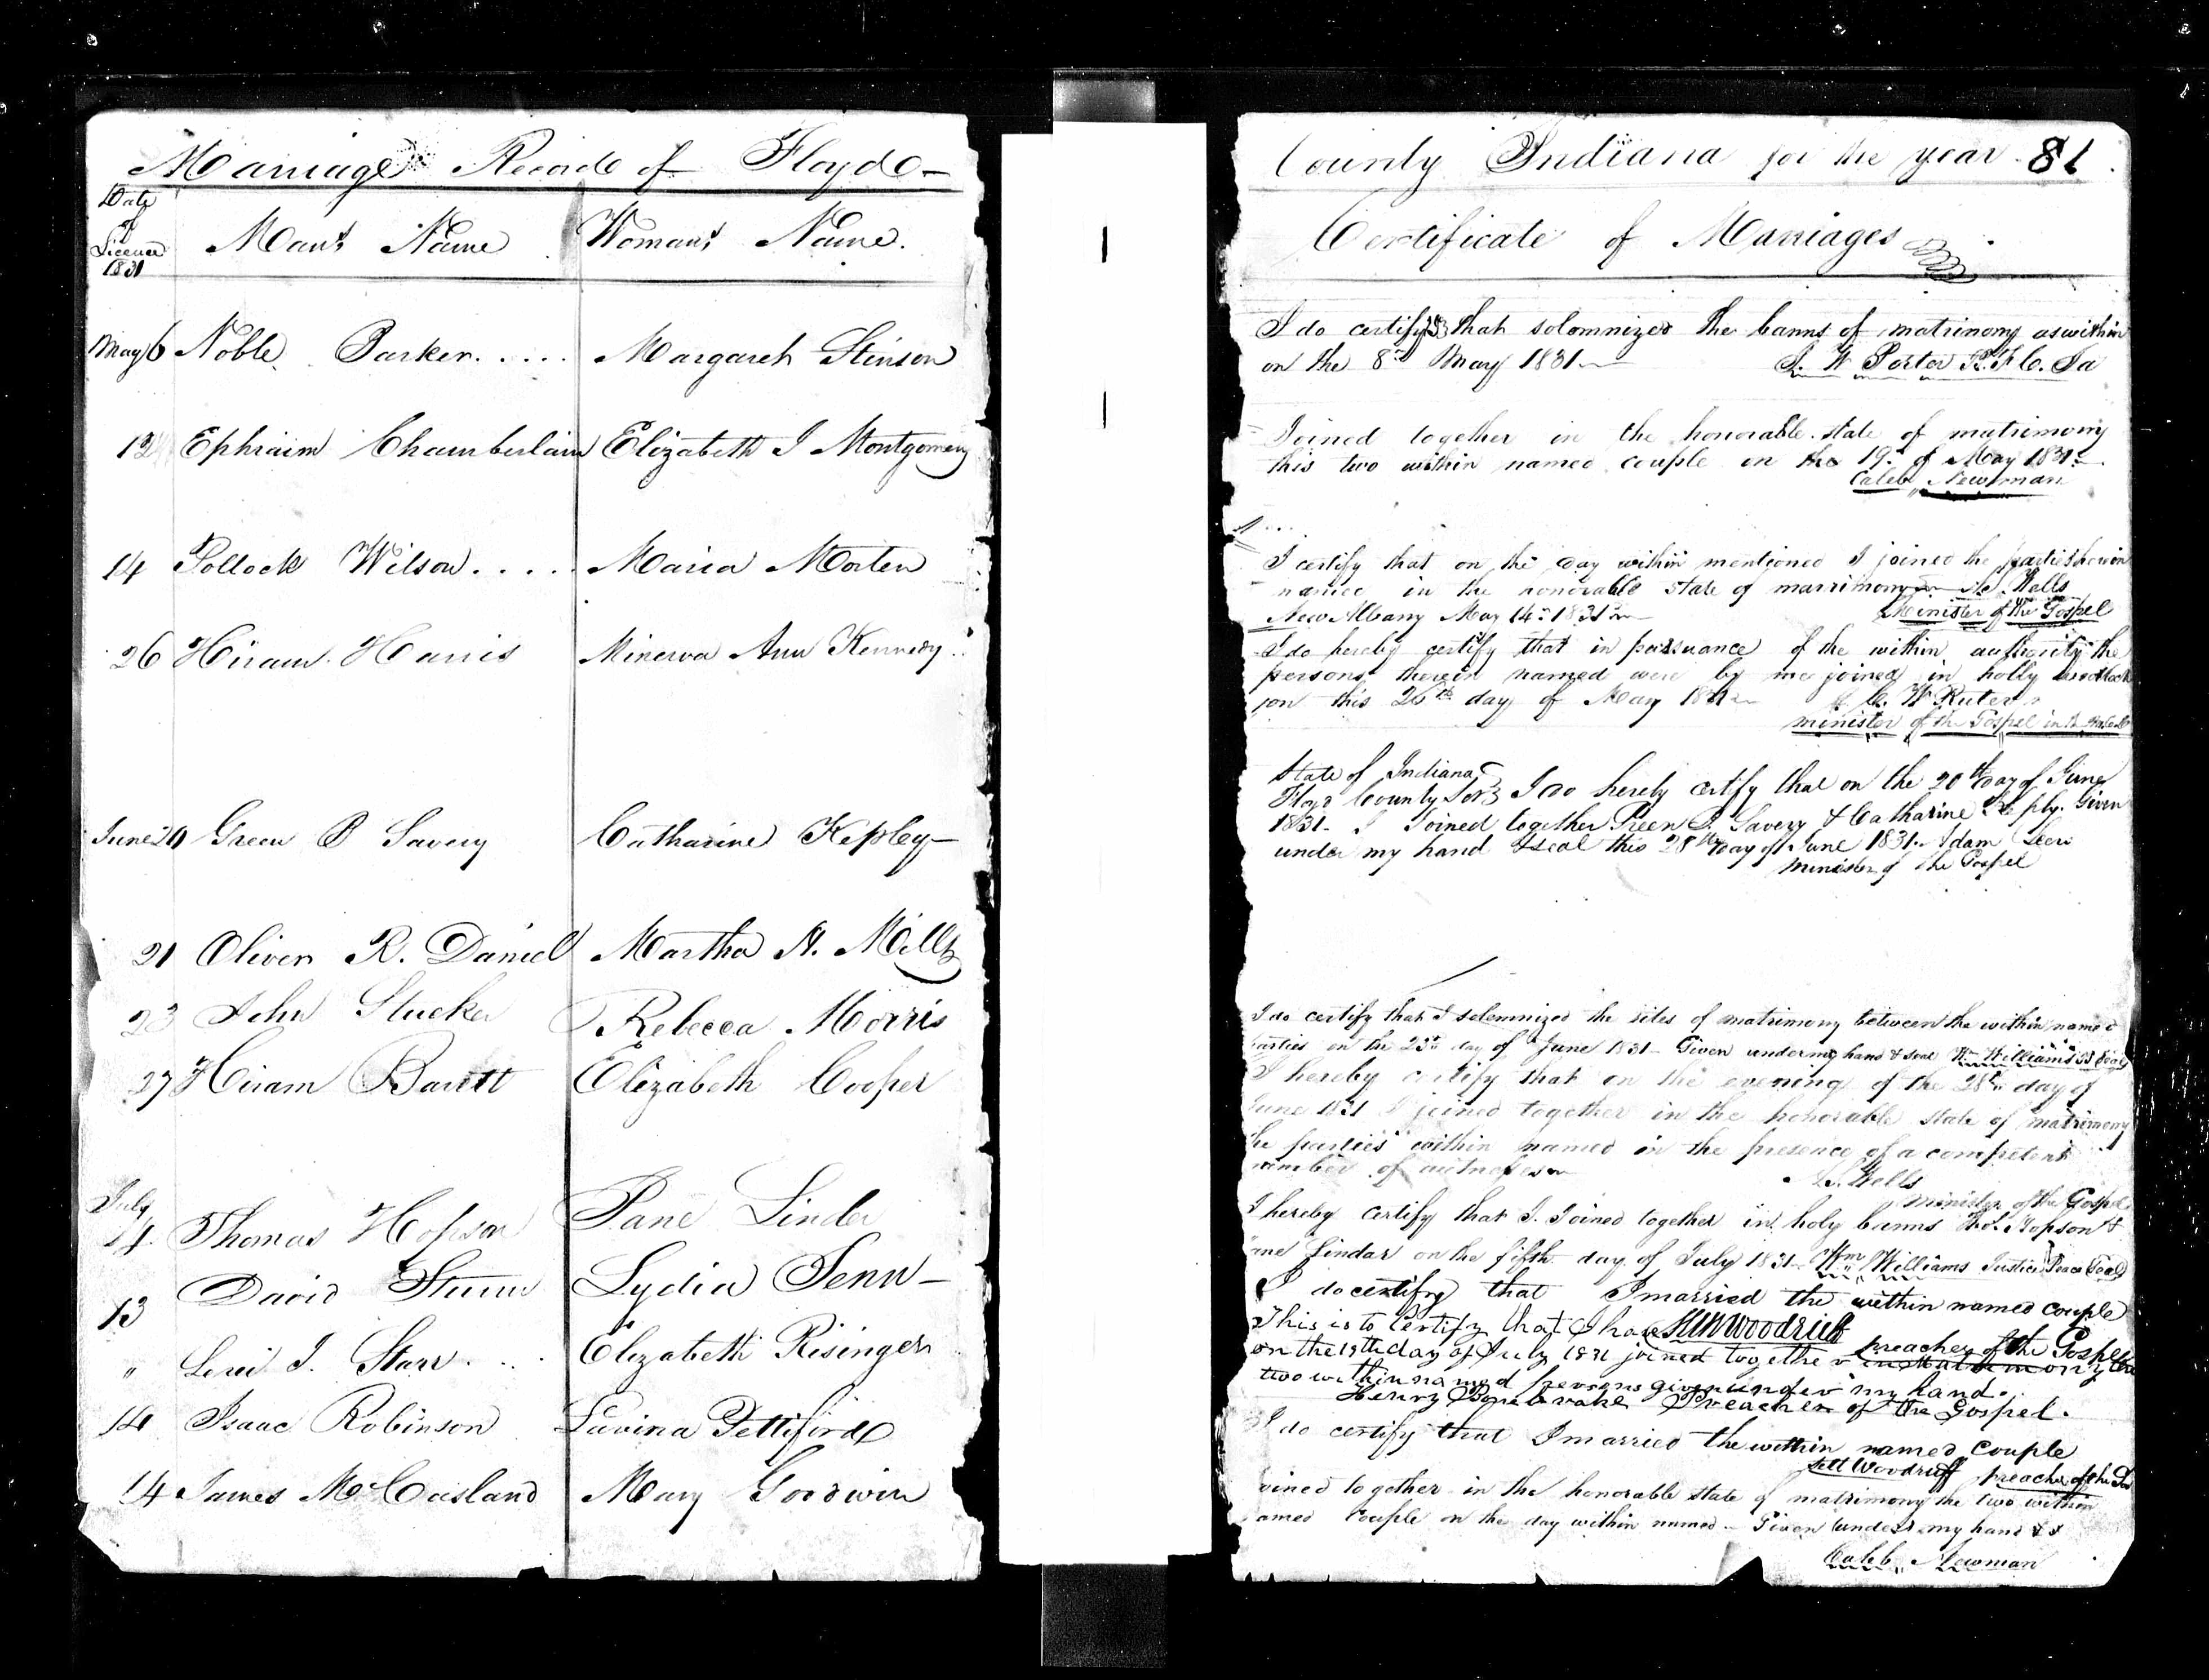 Marriage Record of Floyd
Date
of
Licence
1831
Man's Name
Woman's Name.
May 6 Noble Parker.....
Margaret Stinson
12 Ephraim Chamberlain
Elizabeth J Montgomery
14 Pollock Wilson.....
Maria Morten
26 Hiram Harris
Minerva Ann Kennedy
June 20 Green B Savery
Catharine Kepley
21 Oliver R. Daniel
Martha A. Mills
23 John Stucker
Rebecca Morris
27 Hiram Barett
Elizabeth Cooper
July
4 Thomas Hopson
Jane Linder
13 David
Lydia Senn
" Levi J. Starr
Elizabeth Risinger
14 Isaac Robinson
Lavina Pettiford
14 James McCasland
Mary Goodwin
County Indiana for the year 81
Certificate of Marriages
I do certify that solomnized the banns of matrimony as within
on the 8th May 1831 Porter
Joined together in the honorable state of matrimony
this two within named couple on the 19th of May 1831
Caleb Newman
I certify that on the day within mentioned I joined the parties herein
named in the honorable state of matrimony Wells
New Albany May 14th 1831 Minister of the Gospel
I do hereby certify that in pursuance of the within authority the
persons therein named were by me joined in holly wedlock
on this 26th day of May 1831 C. W Ruter
minister of the Gospel in the
State of Indiana
Floyd County I do hereby certify that on the 20th day of June
1831. I Joined together Green B. Savery & Catharine Keply. Given
under my hand & seal this 28th day of June 1831. Adam
Minister of the Gospel
I do certify that I solemnized the rites of matrimony between the within named
parties on the 23th day of June 1831 Given under my hand & seal Wm Williams
I hereby certify that on the evening of the 28th day of
June 1831 I joined together in the honorable state of matrimony
the parties within named in the presence of a competent
number of witnesses
Wells
minister of the Gospel
I hereby certify that I Joined together in holy banns Thos. Hopson &
Jane Lindar on the fifth day of July 1831 Wm Williams Justice Peace Seal
I do certify that I married the within named couple
This is to Certify that I have Seth Woodruff preacher of the Gospel
on the 19th day of July 1831 joined together in matrimony the
two within named persons given under my hand.
Henry Bonebrake Preacher of the Gospel.
I do certify that I married the within named couple
Seth Woodruff preacher of the
Joined together in the honorable state of matrimony the two within
named couple on the day within named Given under my hand & s
Caleb Newman